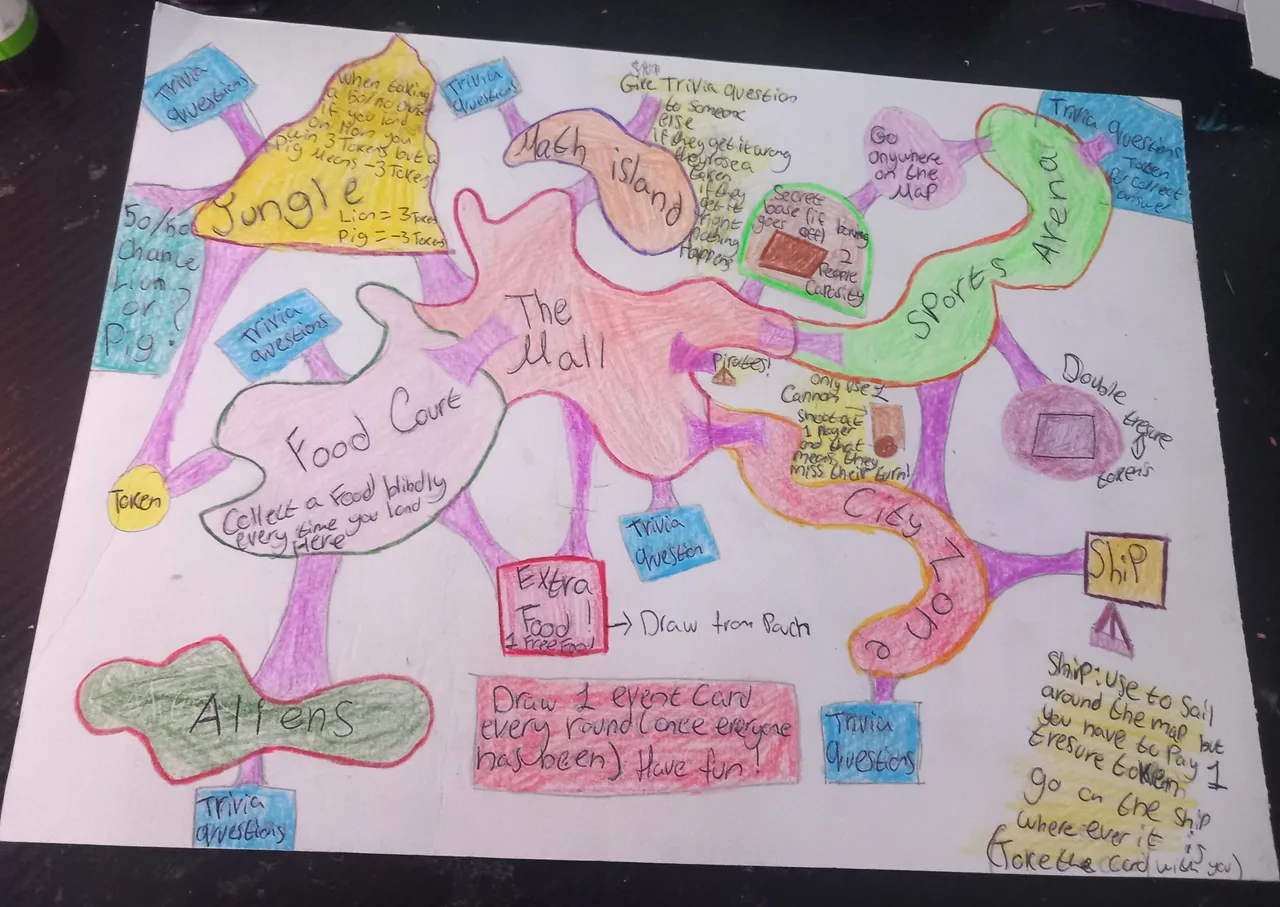 Trivia
questions
When taking
a 50/50 chance
if you land
on lion you
gain 3 Tokens but a
Pig Means -3 Token
Jungle
Lion = 3 Token
Pig = -3 Token
50/50
Chance
Lion
or ?
Pig !
Trivia
question!
Math island
Give Trivia question
to someone
else
if they get it wrong
they lose a
token
if they
get it
right
nothing
Happens
Go
anywhere
on the
Map
Secret
base (if boxing
goes off)
2
People
Capacity
Trivia questions
Token
for collect
answer
Sports Arena
The
Mall
Trivia
questions
Food Court
Collect a Food blindly
every time you land
Here
Token
Pirates!
only use 1
Cannon
shoot at
1 Player
and that
means they
miss their turn!
Double
tresure
tokens
City Zone
Ship
Trivia
question
Extra
Food !
1 Free Food!
Draw from Pouch
Aliens
Trivia
questions
Draw 1 event Card
every round (once everyone
has been) Have fun !
Trivia
questions
Ship: use to sail
around the map but
you have to Pay 1
tresure token
go on the ship
where ever it is
(Take the card with you)